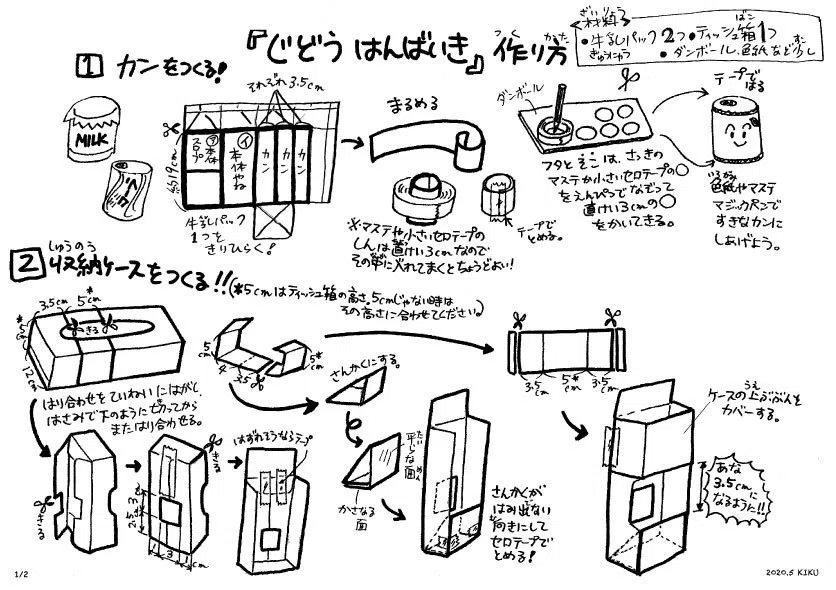 『じどうはんばいき』作り方
つく かた
ざいりょう
材料
・牛乳パック2つ・ティッシュ箱1つ
ぎゅうにゅう
ばこ
・ダンボール、色紙など少し
すこ
1 カンをつくる!
MILK
それぞれ3.5cm
約19cm
本体やね
カン
カン
カン
牛乳パック
1つを
きりひらく!
まるめる
※マステや小さいセロテープの
しんは直けい3cmなので
その中に入れてまくとちょうどよい!
テープで
とめる。
ダンボール
フタとそこは、さっきの
マステか小さいセロテープの○
をえんぴつでなぞって
直けい3cmの○
をかいてきる。
テープで
はる
色紙やマステ
マジックペンで
すきなカンに
しあげよう。
しゅうのう
2 収納ケースをつくる!!
(*5cmはティッシュ箱の高さ。5cmじゃない時は
その高さに合わせてください。)
3.5cm
*5cm
*5cm
きる
12cm
はり合わせをていねいにはがし、
はさみで下のように切ってから
またはり合わせる。
5cm
4
3.5
5*cm
さんかくにする。
3.5cm
5*cm
3.5cm
うえ
ケースの上ぶぶんを
カバーする。
きる
きる
はずれそうならテープ
平らな面
かさなる
面
さんかくが
はみ出ない
向きにして
セロテープで
とめる!
あな
3.5cmに
なるように!!
1/2
2020.5 KIKU